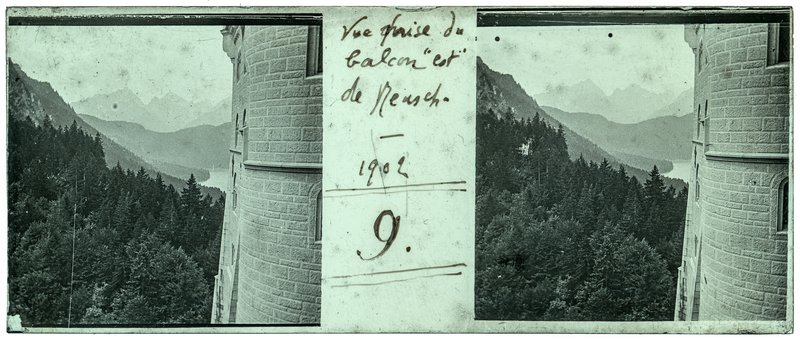 Vue prise du
balcon "est"
de Neusch.
1902
9.